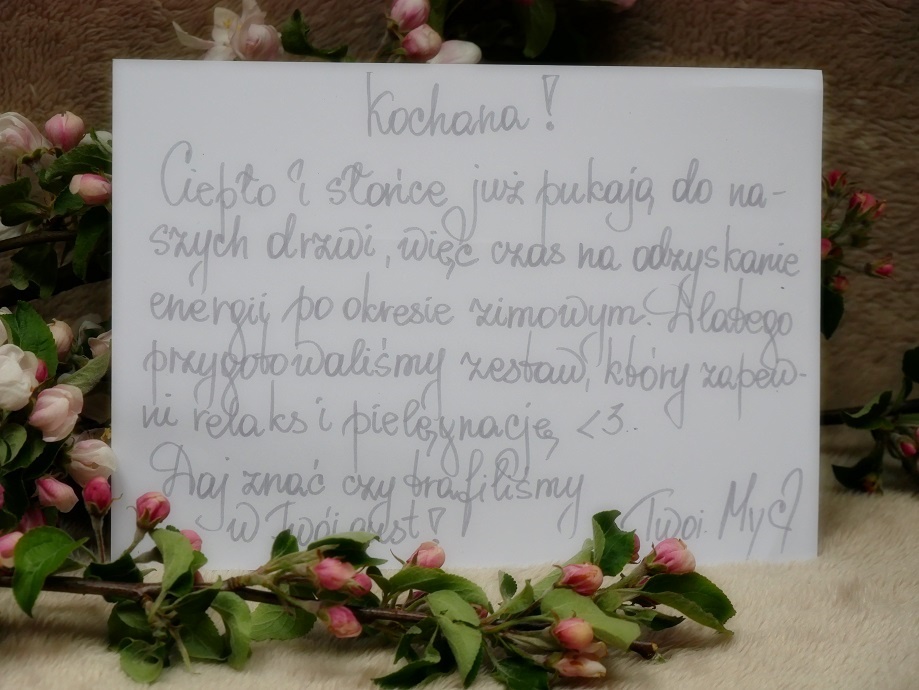 Kochana!
Ciepło i słońce już pukają do na-
szych drzwi, więc czas na odzyskanie
energii, po okresie zimowym. Dlatego
przygotowaliśmy zestaw, który zapew-
ni relaks i pielęgnację, <3..
Daj znać czy trafiliśmy
w Twój gust!
Twoi